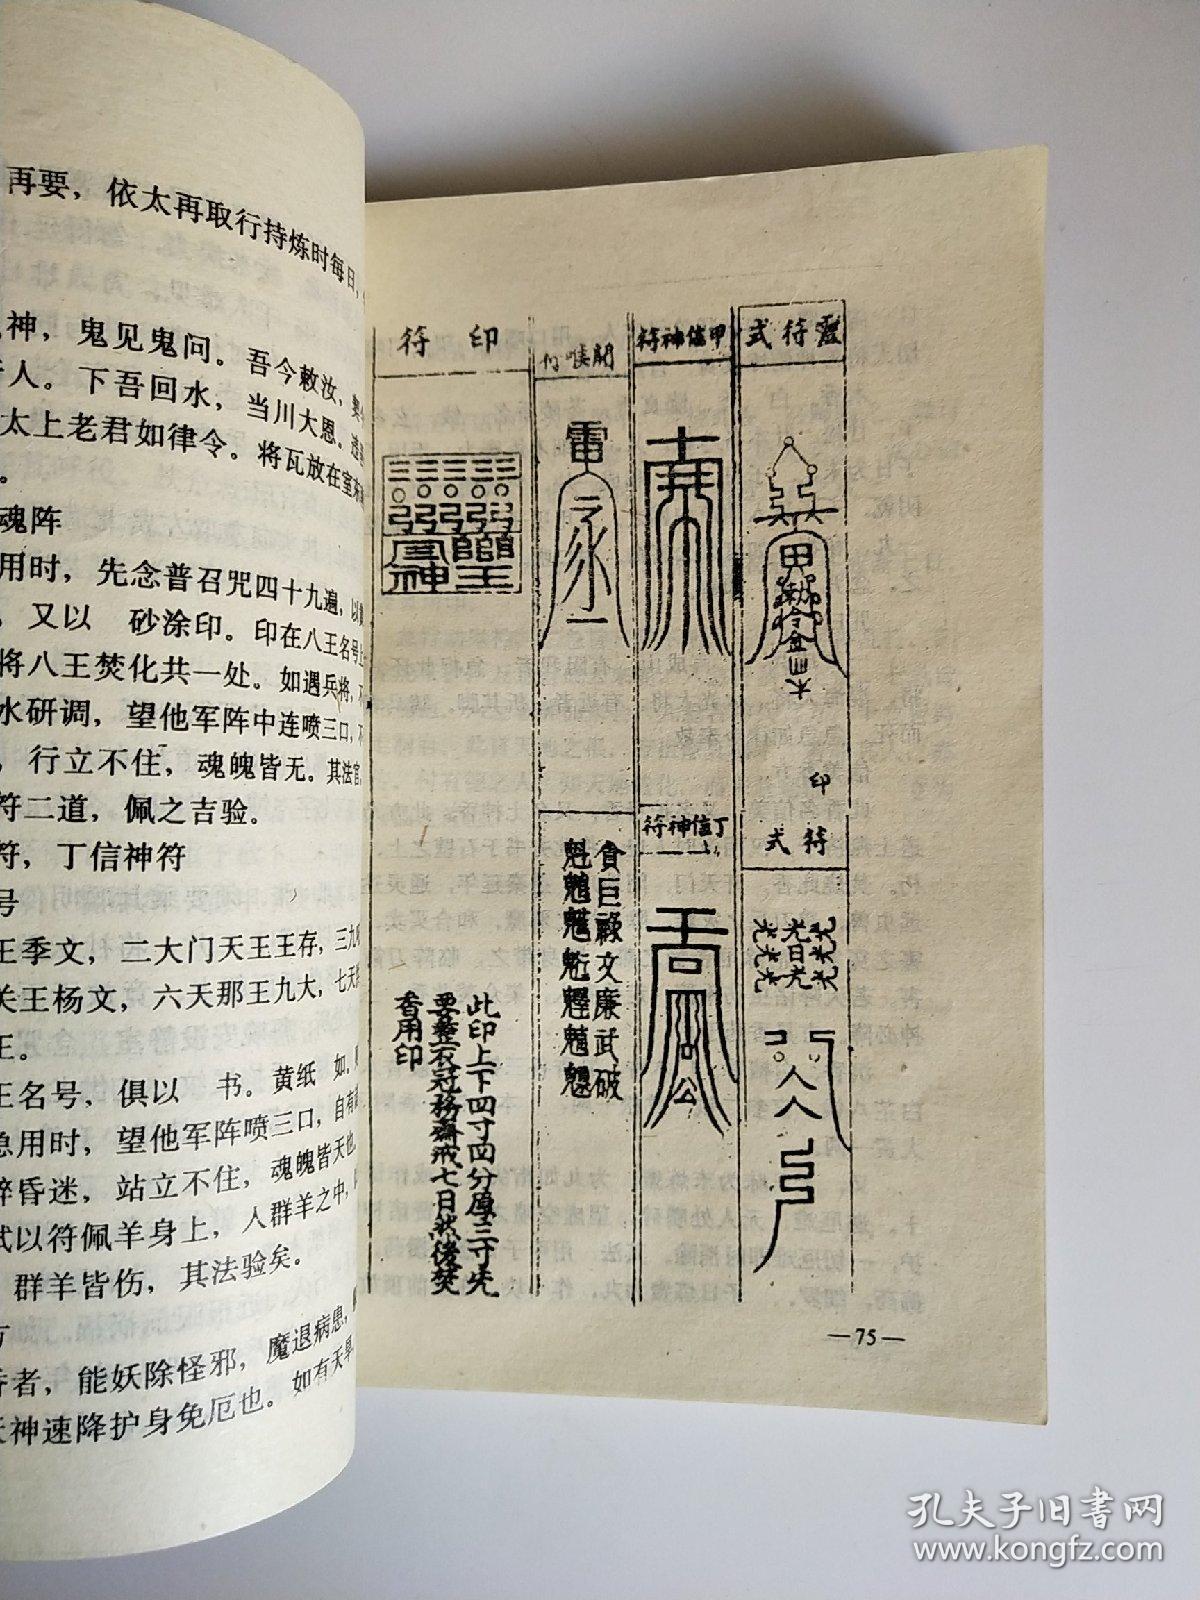 再要，依太再取行持炼时每日，
神，鬼见鬼问。吾今敕汝，
人。下吾回水，当川大恩。
太上老君如律令。将瓦放在室
魂阵
用时，先念普召咒四十九遍，以
，又以　砂涂印。印在八王名号上
将八王焚化共一处。如遇兵将，
水研调，望他军阵中连喷三口，
，行立不住，魂魄皆无。其法官
符二道，佩之吉验。
符，丁信神符
号
王季文，二大门天王王存，三九
关王杨文，六天那王九大，七天
王。
王名号，俱以　书。黄纸　如，
急用时，望他军阵喷三口，自有
醉昏迷，站立不住，魂魄皆天也
试以符佩羊身上，人群羊之中，
群羊皆伤，其法验矣。
方
香者，能妖除怪邪，魔退病患，
天神速降护身免厄也。如有天旱
靈符式
印
符式
甲信神符
丁信神符
貪巨祿文廉武破
印符
此印上下四寸四分厚三寸先
要整衣冠務齋戒七日然後焚
香用印
—75—
孔夫子旧书网
www.kongfz.com